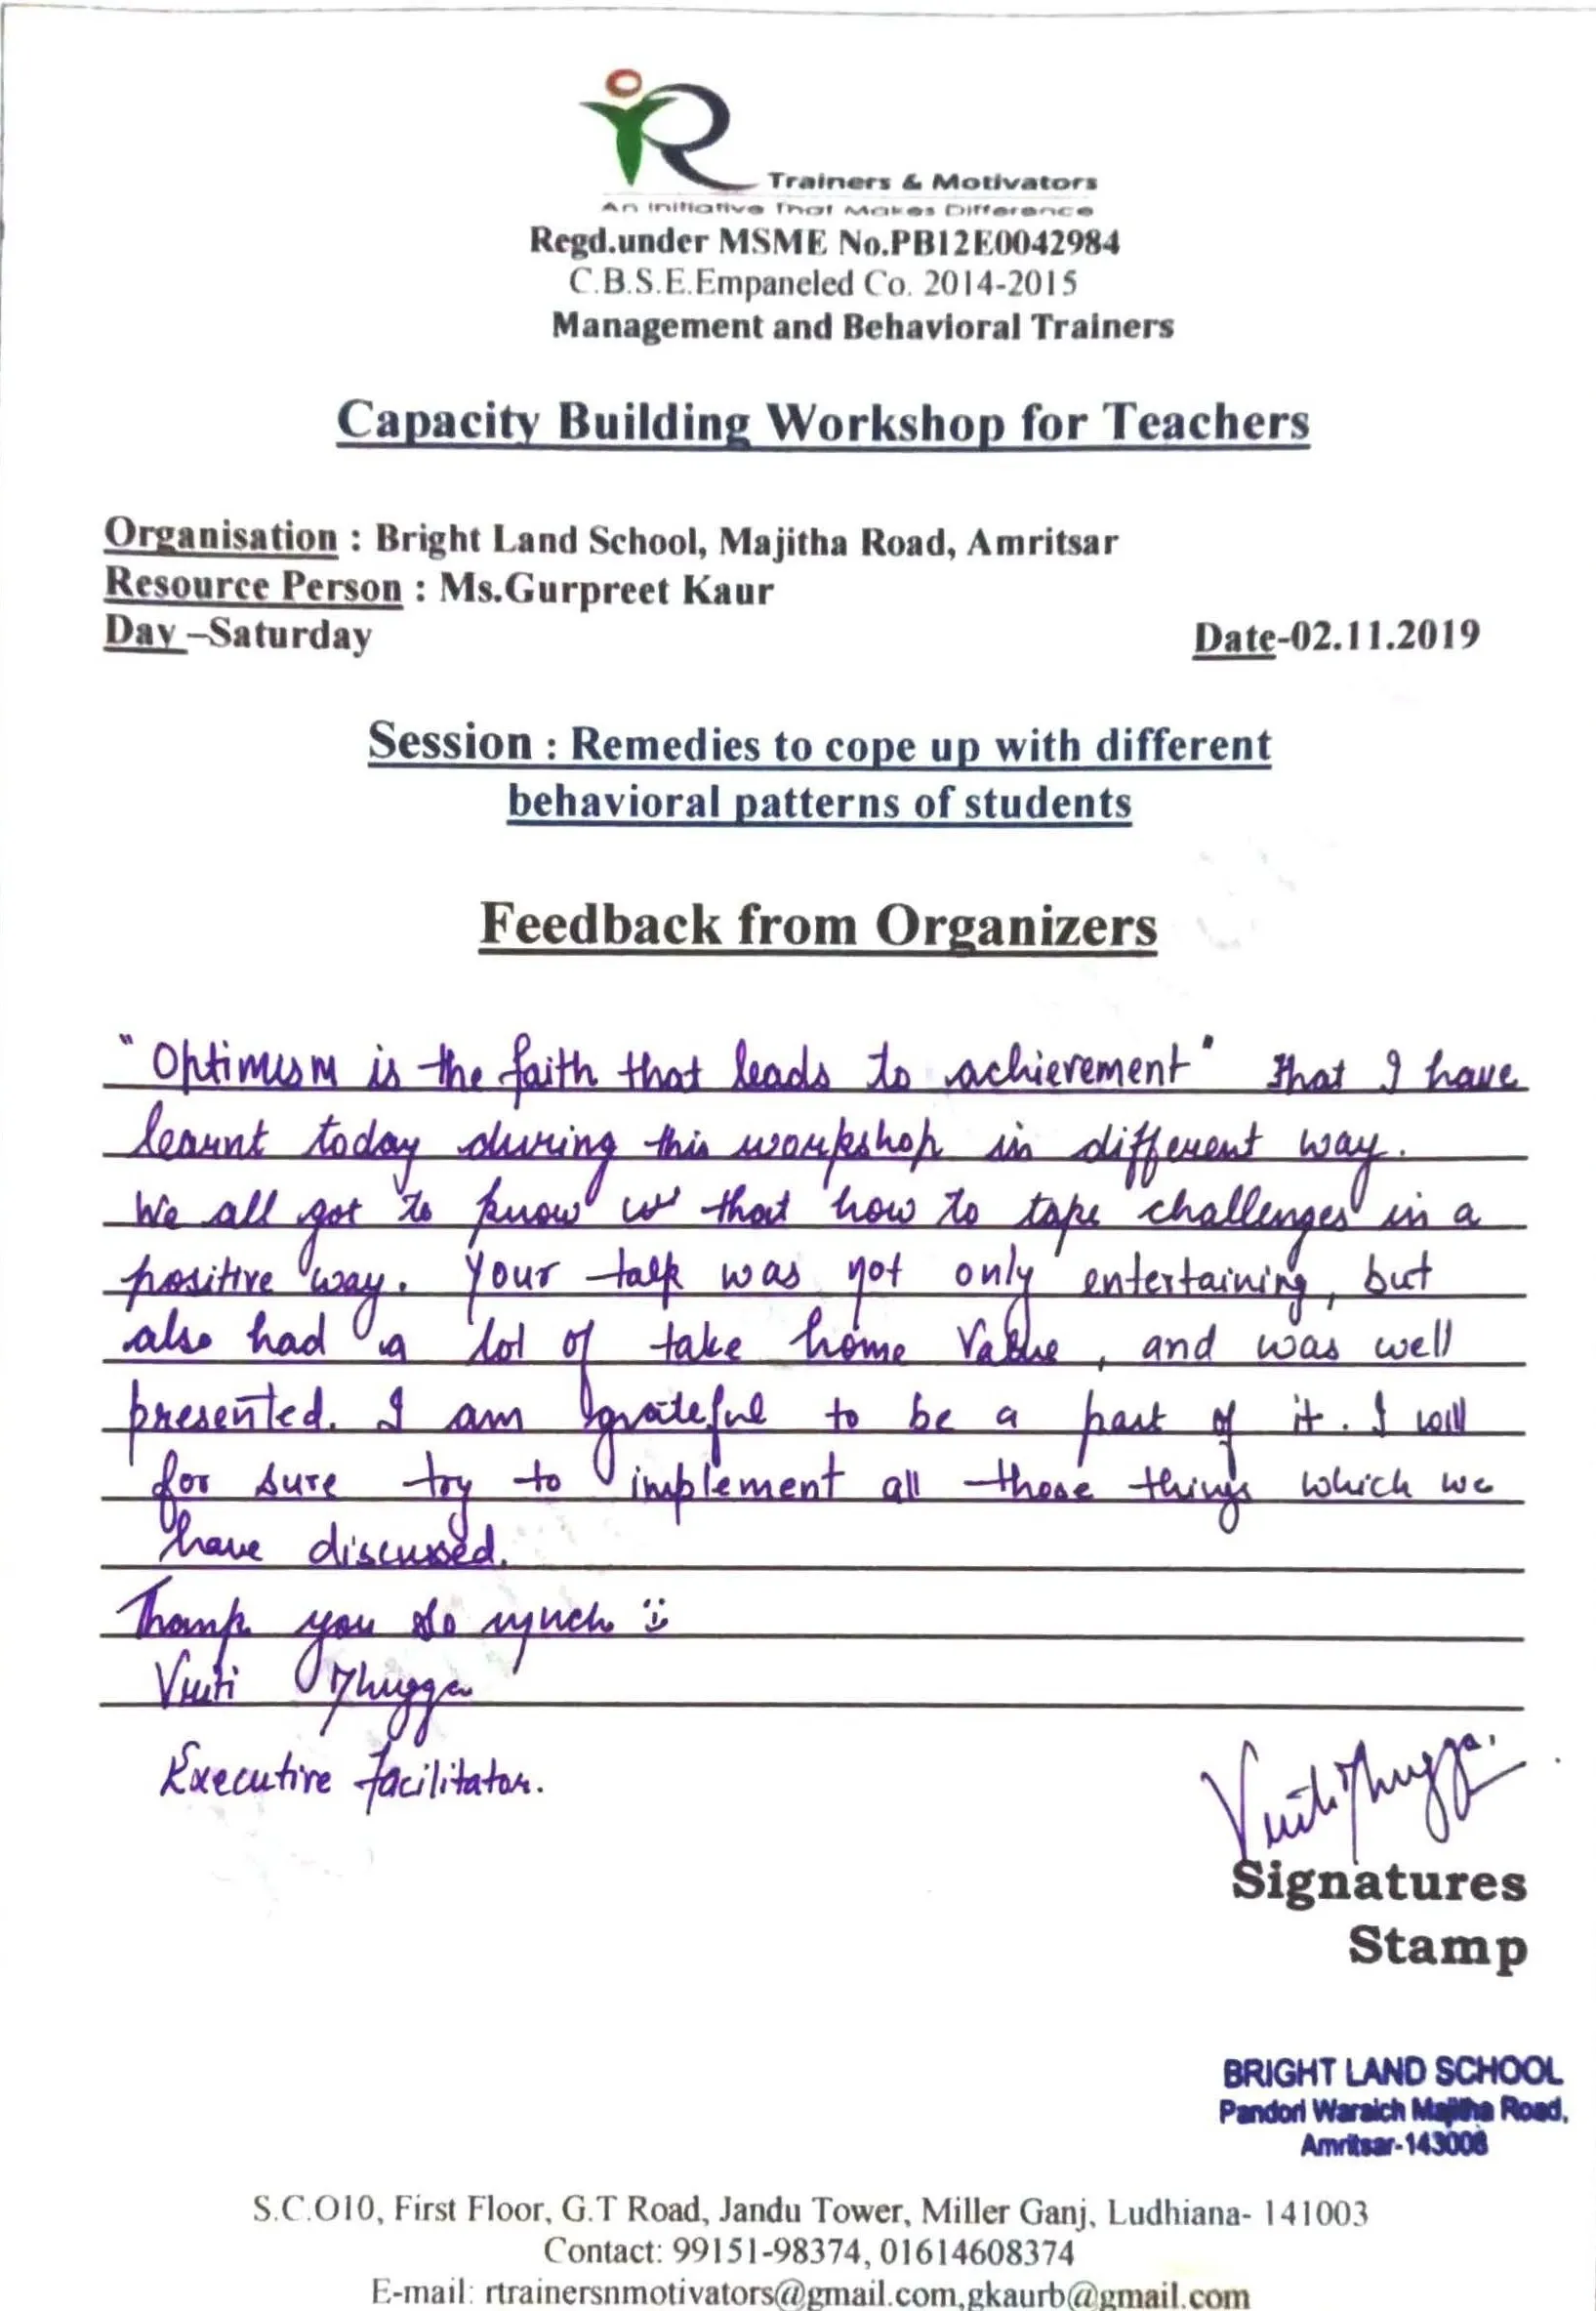 R Trainers & Motivators
An Initiative That Makes Difference
Regd.under MSME No.PB12E0042984
C.B.S.E.Empaneled Co. 2014-2015
Management and Behavioral Trainers
Capacity Building Workshop for Teachers
Organisation : Bright Land School, Majitha Road, Amritsar
Resource Person : Ms.Gurpreet Kaur
Day –Saturday Date-02.11.2019
Session : Remedies to cope up with different
behavioral patterns of students
Feedback from Organizers
"Optimism is the faith that leads to achievement" that I have
learnt today during this workshop in different way.
We all got to know that how to take challenges in a
positive way. Your talk was not only entertaining, but
also had a lot of take home Value, and was well
presented. I am grateful to be a part of it. I will
for sure try to implement all these things which we
have discussed.
Thank you so much :)
Executive facilitator.
Signatures
Stamp
BRIGHT LAND SCHOOL
Pandori Waraich Majitha Road,
Amritsar-143008
S.C.O10, First Floor, G.T Road, Jandu Tower, Miller Ganj, Ludhiana- 141003
Contact: 99151-98374, 01614608374
E-mail: rtrainersnmotivators@gmail.com,gkaurb@gmail.com